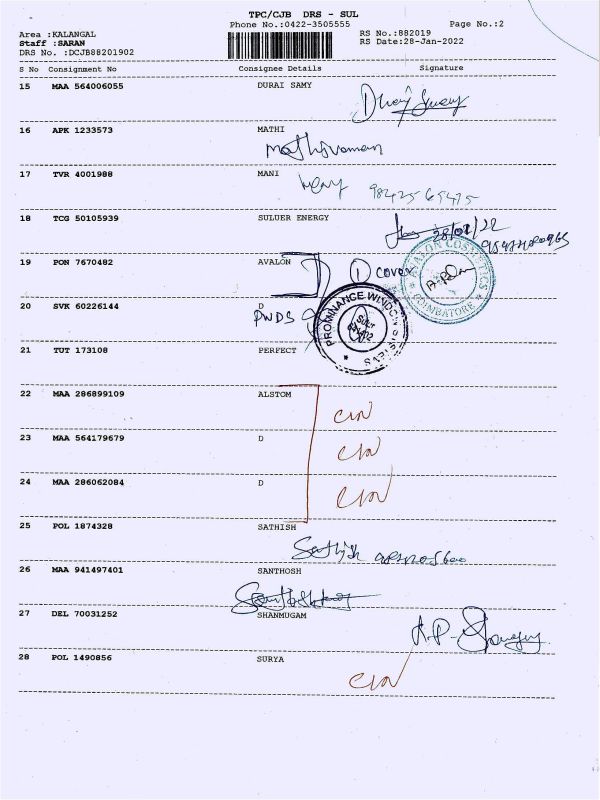 TPC/CJB DRS - SUL
Phone No.:0422-3505555
Page No.:2
Area :KALANGAL
Staff :SARAN
DRS No. :DCJB88201902
RS No.:882019
RS Date:28-Jan-2022
S No Consignment No Consignee Details Signature
15 MAA 564006055 DURAI SAMY
16 APK 1233573 MATHI
Mathivanan
17 TVR 4001988 MANI
Mani
18 TCG 50105939 SULUER ENERGY
19 PON 7670482 AVALON
1 cover
AVALON COSMETICS
COIMBATORE
20 SVK 60226144 D
PWDS
PROMINANCE WINDOW
21 TUT 173108 PERFECT
22 MAA 286899109 ALSTOM
23 MAA 564179679 D
24 MAA 286062084 D
25 POL 1874328 SATHISH
Sathish
26 MAA 941497401 SANTHOSH
27 DEL 70031252 SHANMUGAM
28 POL 1490856 SURYA